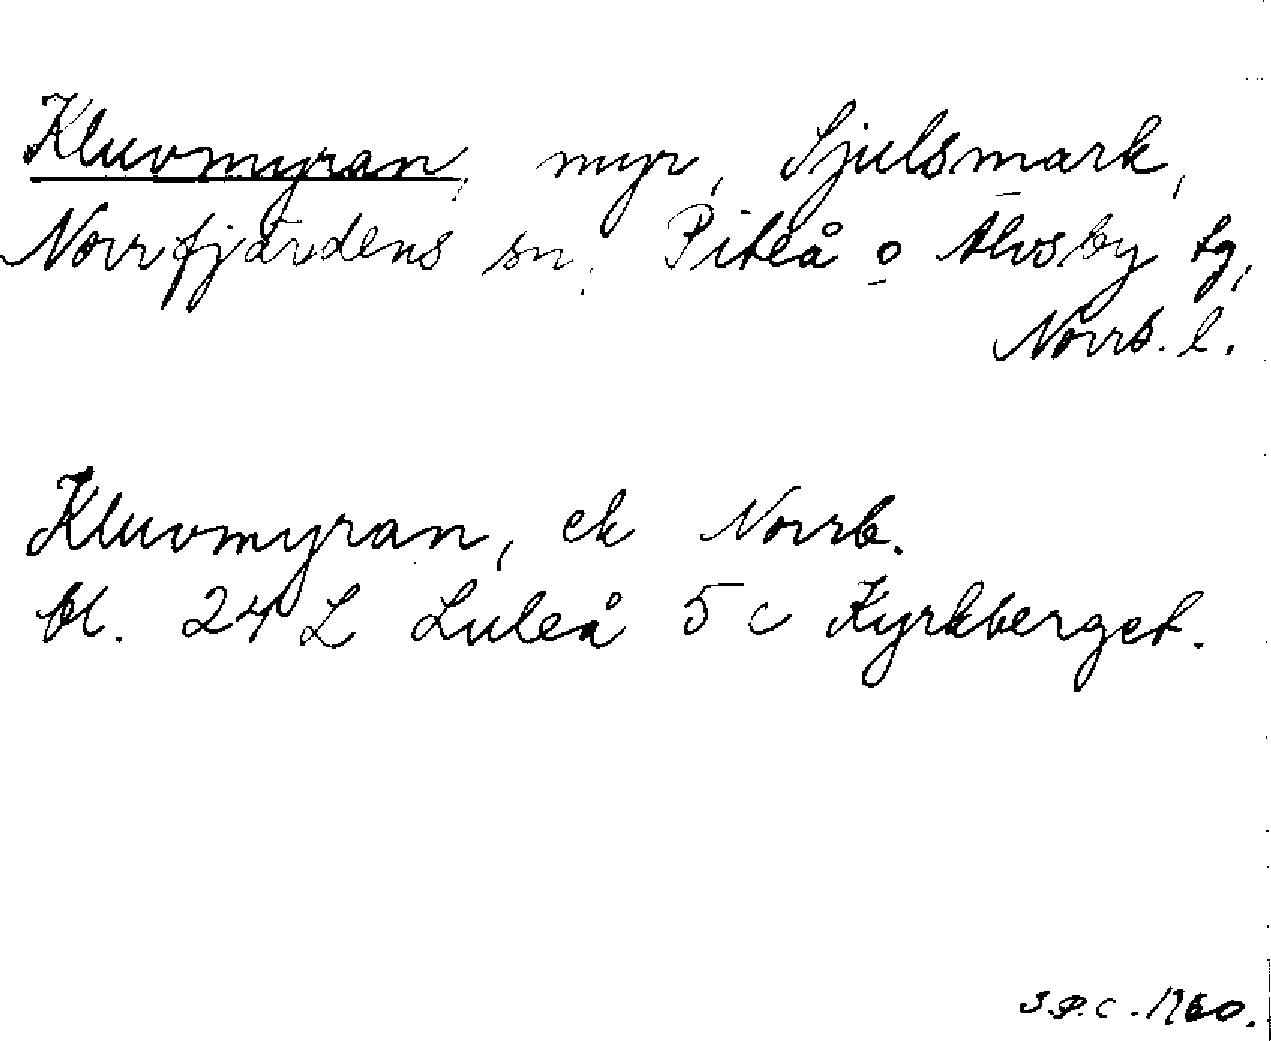 Kluvmyran, myr, Sjulsmark,
Norrfjärdens sn, Piteå o Älvsby tg,
Norrb. l.
Kluvmyran, ek Norrb.
bl. 24 L Luleå 5 c Kyrkberget.
S.P.C. 1960.